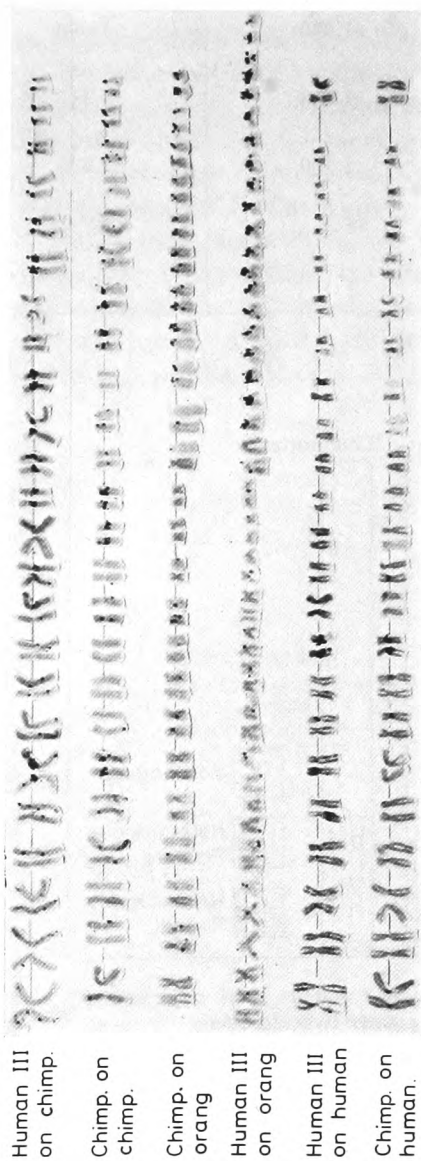 Human III
on chimp.
Chimp. on
chimp.
Chimp. on
orang
Human III
on orang
Human III
on human
Chimp. on
human.